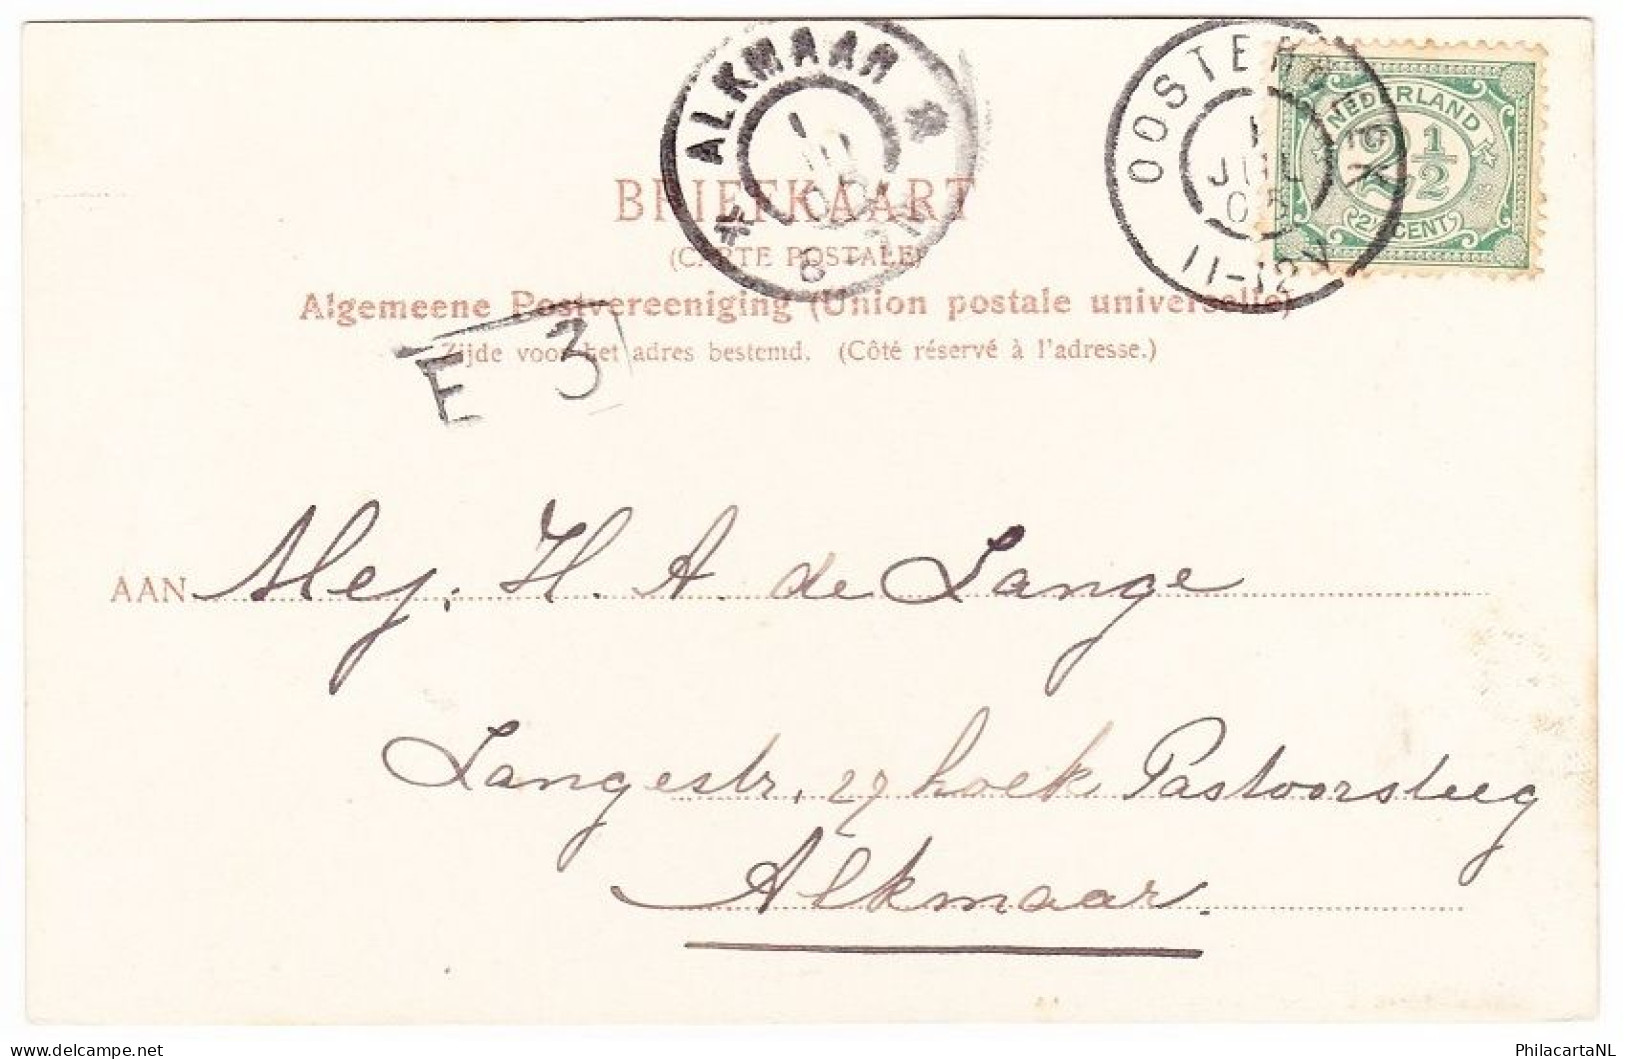 ALKMAAR
8-
OOSTERBEEK
1
JUL
05
11-12V
NEDERLAND
2 1/2
2½ CENT
BRIEFKAART
(CARTE POSTALE)
Algemeene Postvereeniging (Union postale universelle)
Zijde voor het adres bestemd. (Côté réservé à l'adresse.)
E 3
AAN Mej. H. A. de Lange
Langestr. 27 hoek Pastoorsteeg
Alkmaar.
www.delcampe.net
PhilacartaNL